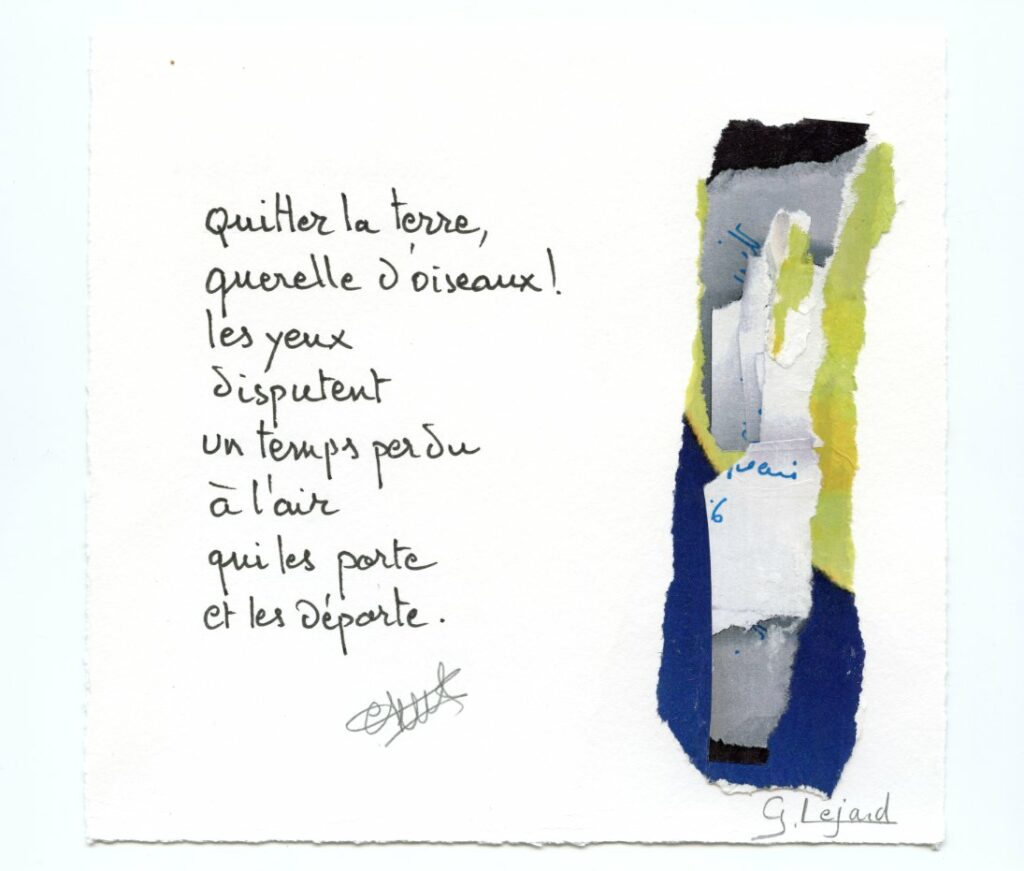 Quitter la terre,
querelle d'oiseaux!
les yeux
disputent
un temps perdu
à l'air
qui les porte
et les déporte.
6
G. Lejard